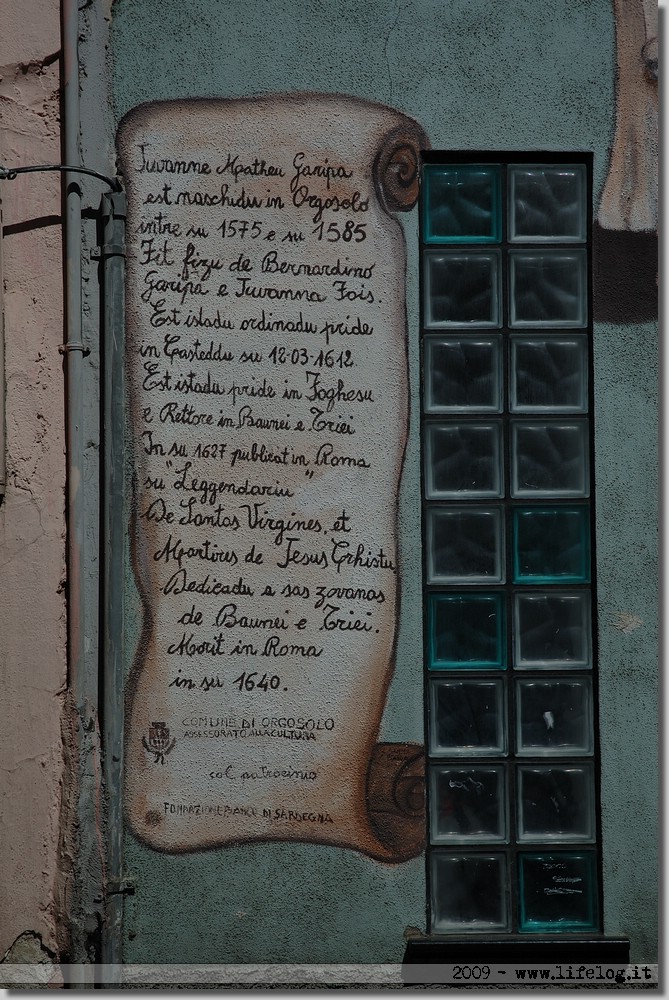 Juvanne Matheu Garipa
est naschidu in Orgosolo
intre su 1575 e su 1585
Fit fizu de Bernardino
Garipa e Juvanna Fois.
Est istadu ordinadu pride
in Casteddu su 12-03-1612
Est istadu pride in Foghesu
e Rettore in Baunei e Triei
In su 1627 publicat in Roma
su "Leggendariu"
De Santas Virgines, et
Martires de Jesus Crhistu
Dedicadu a sas zovanas
de Baunei e Triei.
Morit in Roma
in su 1640.
COMUNE DI ORGOSOLO
ASSESSORATO ALLA CULTURA
col patrocinio
FONDAZIONE BANCO DI SARDEGNA
2009 - www.lifelog.it